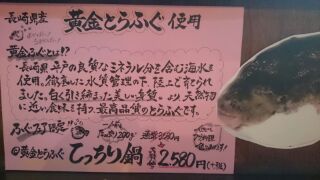 長崎県産
黄金とらふぐ 使用
黄金ふぐとは!?
・長崎県 平戸の良質なミネラル分を含む海水を
使用。徹底した水質管理の下 陸上で育てられ
ました。白く引き締まった美しい身質。より天然物
に近い食味を持つ最高品質のとらふぐです。
一人前
たっぷり200g
通常3080円
黄金とらふぐ
てっちり鍋
2,580円(+税)